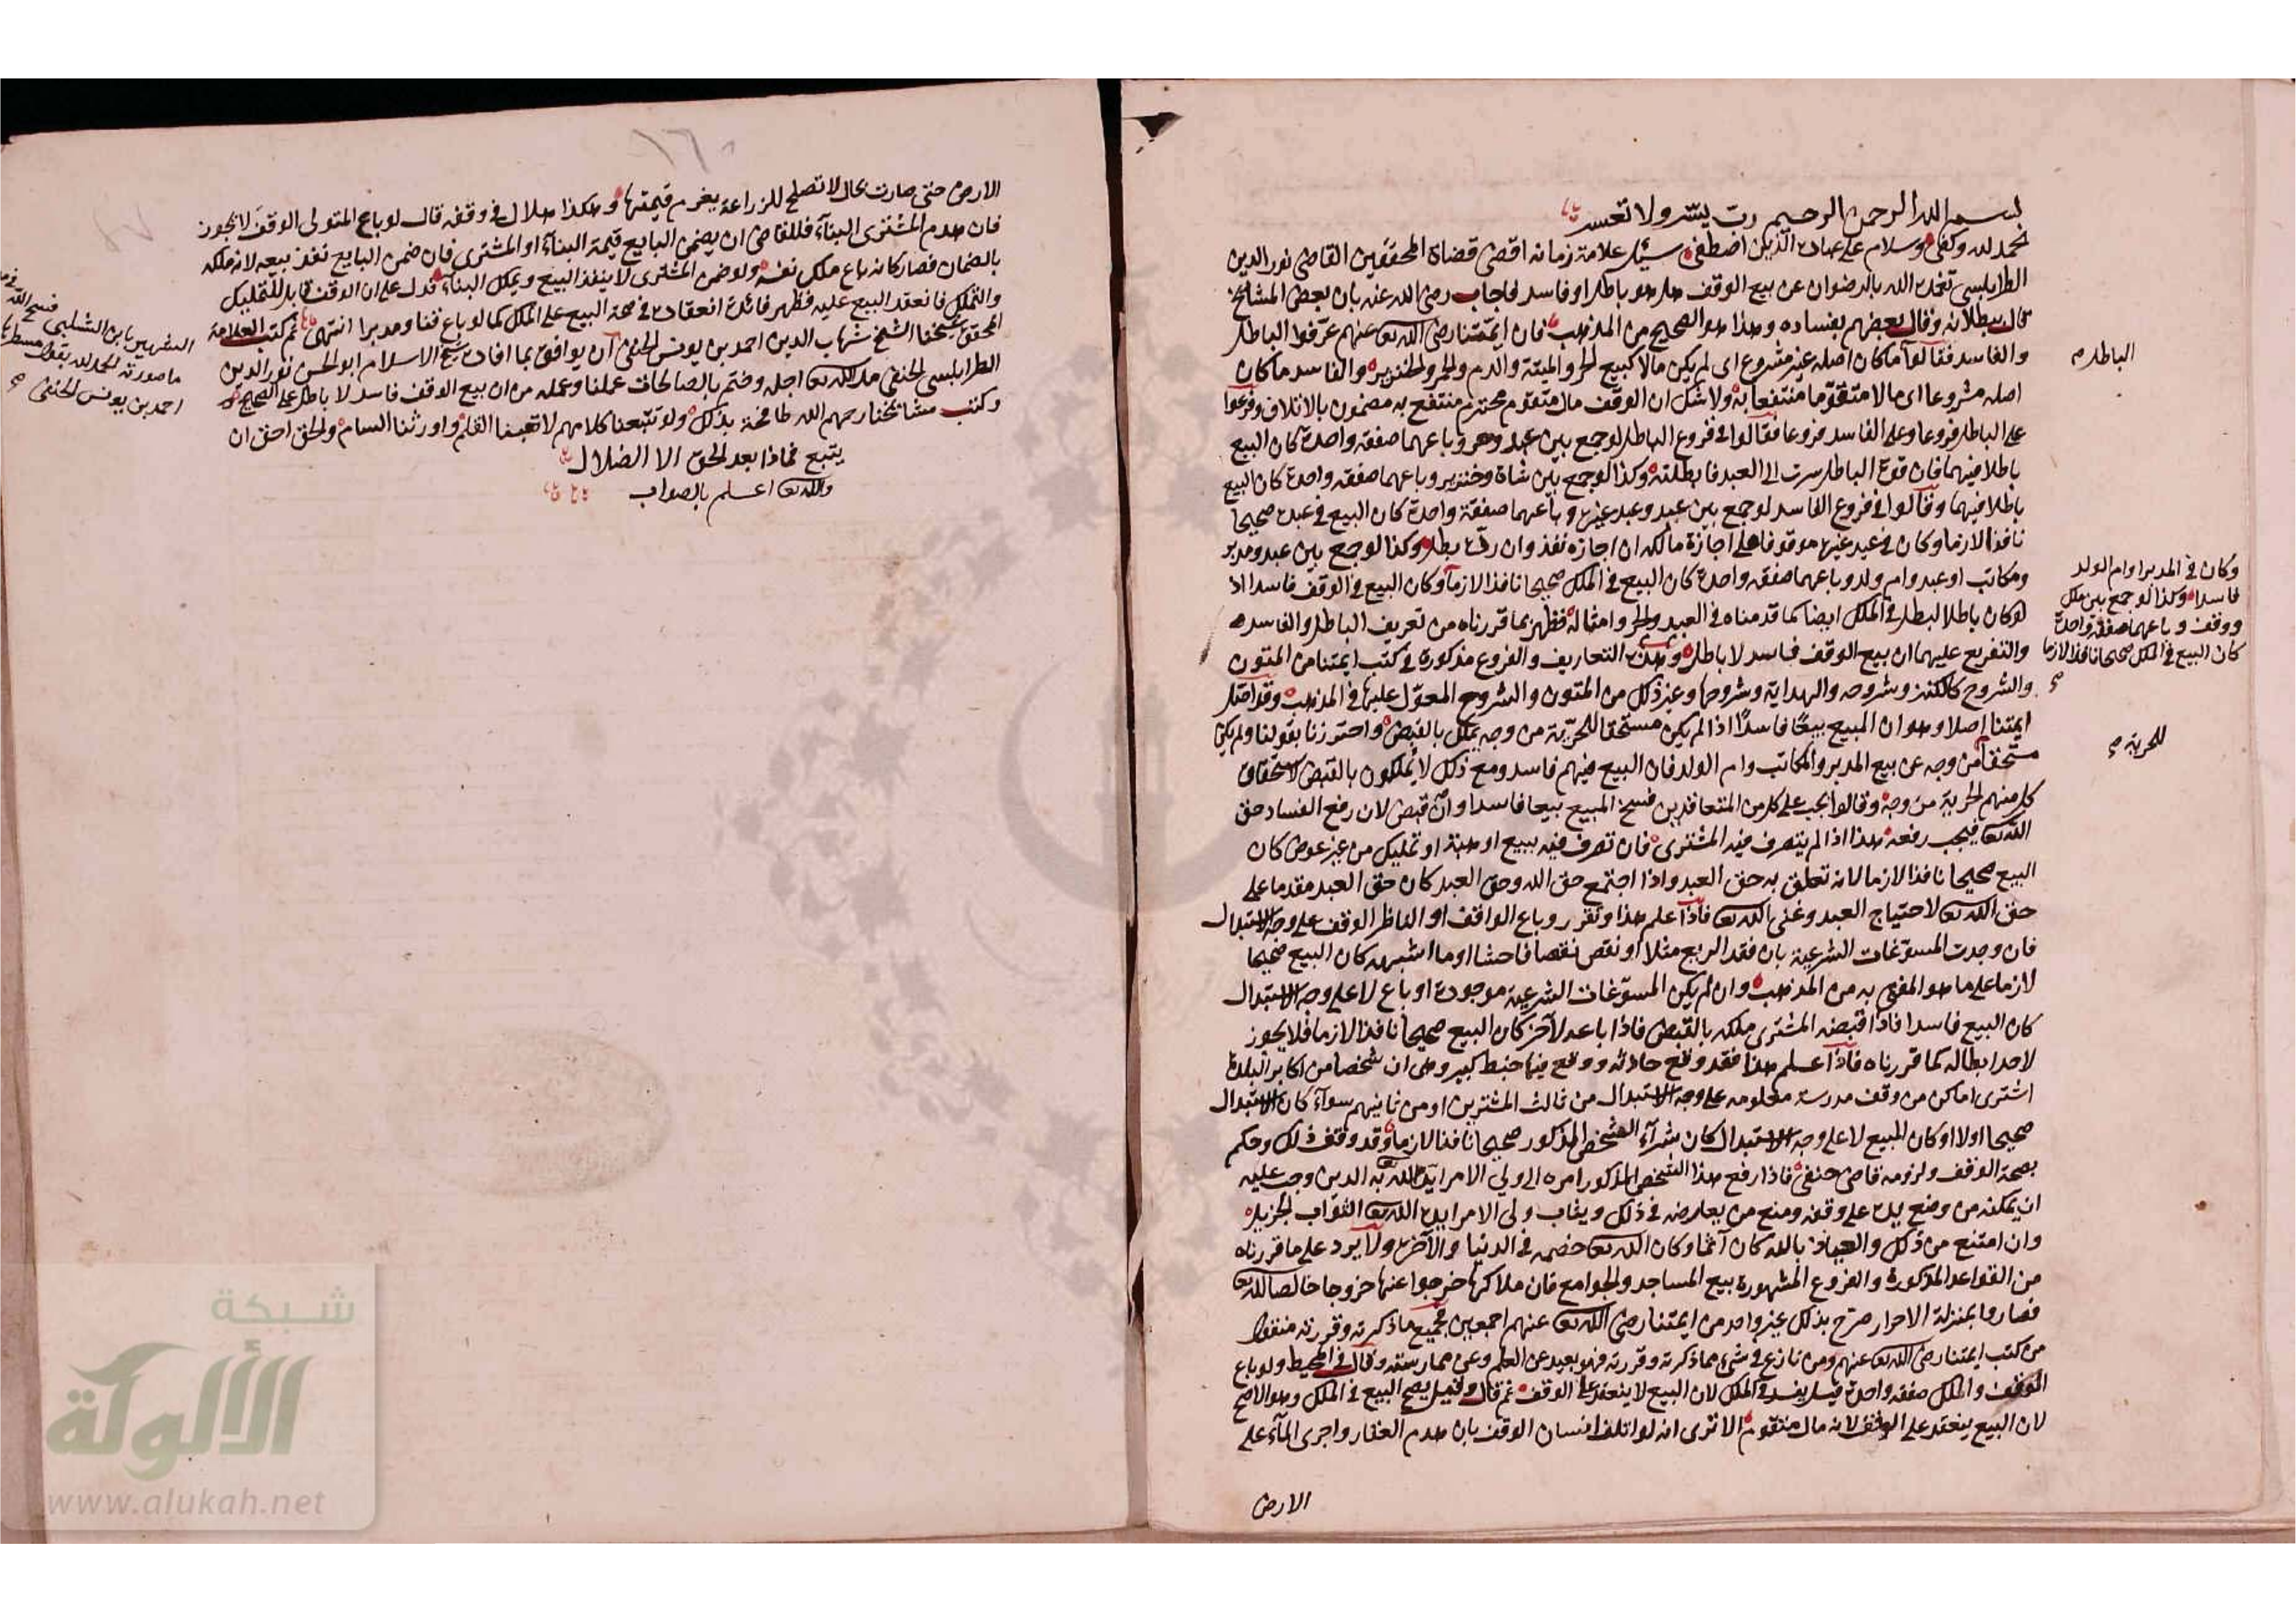 بسم الله الرحمن الرحيم رب يسر ولا تعسر
الحمد لله وكفى وسلام على عباده الذين اصطفى سئل علامة زمانه اقضى قضاة المحققين القاضى نور الدين
الطرابلسى تغمده الله بالرضوان عن بيع الوقف هل هو باطل او فاسد فاجاب رضى الله عنه بان بعض المشايخ
قال ببطلانه وقال بعضهم بفساده وهذا هو الصحيح من المذهب فان ايمتنا رضى الله تعا عنهم عرفوا الباطل
والفاسد فقالوا ما كان اصله غير مشروع اى لم يكن مالا كبيع الحر والميتة والدم والخمر والخنزير والفاسد ما كان
الباطل م
اصله مشروعا اى مالا متقوما منتفعا به ولا شك ان الوقف مال متقوم محترم منتفع به مضمون بالاتلاف وفرعوا
على الباطل فروعا وعلى الفاسد فروعا فقالوا فى فروع الباطل لو جمع بين عبد وحر وباعهما صفقة واحدة كان البيع
باطلا فيهما فان قوة الباطل سرت الى العبد فابطلته وكذا لو جمع بين شاة وخنزير وباعهما صفقة واحدة كان البيع
باطلا فيهما وقالوا فى فروع الفاسد لو جمع بين عبد وعبد غيره وباعهما صفقة واحدة كان البيع فى عبده صحيحا
نافذا لازما وكان فى عبد غيره موقوفا على اجازة مالكه ان اجازه نفذ وان رده بطل وكذا لو جمع بين عبد ومدبر
ومكاتب او عبد وام ولد وباعهما صفقة واحدة كان البيع فى الملك صحيحا نافذا لازما وكان البيع فى الوقف فاسدا اذ
وكان فى المدبر او ام الولد
فاسدا وكذا لو جمع بين ملك
ووقف وباعهما صفقة واحدة
كان البيع فى الملك صحيحا نافذا لازما
لو كان باطلا لبطل فى الملك ايضا كما قدمناه فى العبد والحر وامثاله فظهر بما قررناه من تعريف الباطل والفاسد
والتفريع عليهما ان بيع الوقف فاسد لا باطل وهذه التعاريف والفروع مذكورة فى كتب ايمتنا من المتون
والشروح كالكنز وشروحه والهداية وشروحها وغير ذلك من المتون والشروح المعول عليها فى المذهب وقد اصل
ايمتنا اصلا وهو ان المبيع بيعا فاسدا اذا لم يكن مستحقا للحرية من وجه يملك بالقبض واحترزنا بقولنا ولم يكن
للحرية
مستحقا من وجه عن بيع المدبر والمكاتب وام الولد فان البيع فيهم فاسد ومع ذلك لا يملكون بالقبض لاستحقاق
كل منهم الحرية من وجه وقالوا يجب على كل من المتعاقدين فسخ المبيع بيعا فاسدا وان قبض لان رفع الفساد حق
الله تعا فيجب رفعه هذا اذا لم يتصرف فيه المشترى فان تصرف فيه ببيع او هبة او تمليك من غير عوض كان
البيع صحيحا نافذا لازما لانه تعلق به حق العبد واذا اجتمع حق الله وحق العبد كان حق العبد مقدما على
حق الله تعا لاحتياج العبد وغنى الله تعا فاذا علم هذا وتقرر وباع الواقف او الناظر الوقف على وجه الاستبدال
فان وجدت المسوغات الشرعية بان فقد الريع مثلا او نقص نقصا فاحشا او ما اشبهه كان البيع صحيحا
لازما على ما هو المفتى به من المذهب وان لم يكن المسوغات الشرعية موجودة او باع لا على وجه الاستبدال
كان البيع فاسدا فاذا قبضه المشترى ملكه بالقبض فاذا باعه لآخر كان البيع صحيحا نافذا لازما فلا يجوز
لاحد ابطاله كما قررناه فاذا علم هذا فقد وقع حادثه ووقع فيها خبط كبير وهى ان شخصا من اكابر البلدة
اشترى اماكن من وقف مدرسة معلومه على وجه الاستبدال من ثالث المشترين او من ثانيهم سوآء كان الاستبدال
صحيحا اولا او كان المبيع لا على وجه الاستبدال كان شرآء الشخص المذكور صحيحا نافذا لازما وقد وقف ذلك وحكم
بصحة الوقف ولزومه قاضى حنفى فاذا رفع هذا الشخص المذكور امره الى ولى الامر ايد الله تعا به الدين وجب عليه
ان يمكنه من وضع يده على وقفه ومنع من يعارضه فى ذلك ويثاب ولى الامر ايده الله تعا الثواب الجزيل
وان امتنع من ذلك والعياذ بالله كان آثما وكان الله تعا خصمه فى الدنيا والآخرة ولا يرد على ما قررناه
من القواعد المذكورة والفروع المشهورة بيع المساجد والجوامع فان ملاكها خرجوا عنها خروجا خالصا لله تعا
فصاروا بمنزلة الاحرار صرح بذلك غير واحد من ايمتنا رضى الله تعا عنهم اجمعين فجميع ما ذكرته وقررته منقول
من كتب ايمتنا رضى الله تعا عنهم ومن نازع فى شئ مما ذكرته وقررته فهو بعيد عن العلم وعن ممارسته وقال فى المحيط ولو باع
الوقف والملك صفقة واحدة قيل يفسد فى الملك لان البيع لا ينعقد على الوقف ثم قال وقيل يصح البيع فى الملك وهو الاصح
لان البيع ينعقد على الوقف لانه مال متقوم الا ترى انه لو اتلف انسان الوقف بان هدم العقار واجرى المآء على
الارض
١٦٠
الارض حتى صارت بحال لا تصلح للزراعة يغرم قيمتها وهكذا هلال فى وقفه قال لو باع المتولى الوقف لا يجوز
فان هدم المشترى البنآء فللقاضى ان يضمن البايع قيمة البنآء او المشترى فان ضمن البايع نفذ بيعه لانه ملكه
بالضمان فصار كانه باع ملك نفسه ولو ضمن المشترى لا ينفذ البيع ويملك البناء فدل على ان الوقف قابل للتمليك
والتملك فانعقد البيع عليه فظهر فائدة انعقاده فى صحة البيع على الملك كما لو باع قنا ومدبرا انتهى ثم كتب العلامة
المحقق شيخنا الشيخ شهاب الدين احمد بن يونس الحنفى
الشهير بابن الشلبى فسح الله
ما صورته الحمد لله يقول مسطرها
احمد بن يونس الحنفى
ان يوافق بما افاده شيخ الاسلام ابو الحسن نور الدين
الطرابلسى الحنفى مد الله تعا اجله وختم بالصالحات عملنا وعمله من ان بيع الوقف فاسد لا باطل على الصحيح
وكتب مشائخنا رحمهم الله طافحة بذلك ولو تتبعنا كلامهم لاتعبنا القلم واورثنا السام والحق احق ان
يتبع فماذا بعد الحق الا الضلال
والله تعا اعلم بالصواب
شبكة
الألوكة
www.alukah.net